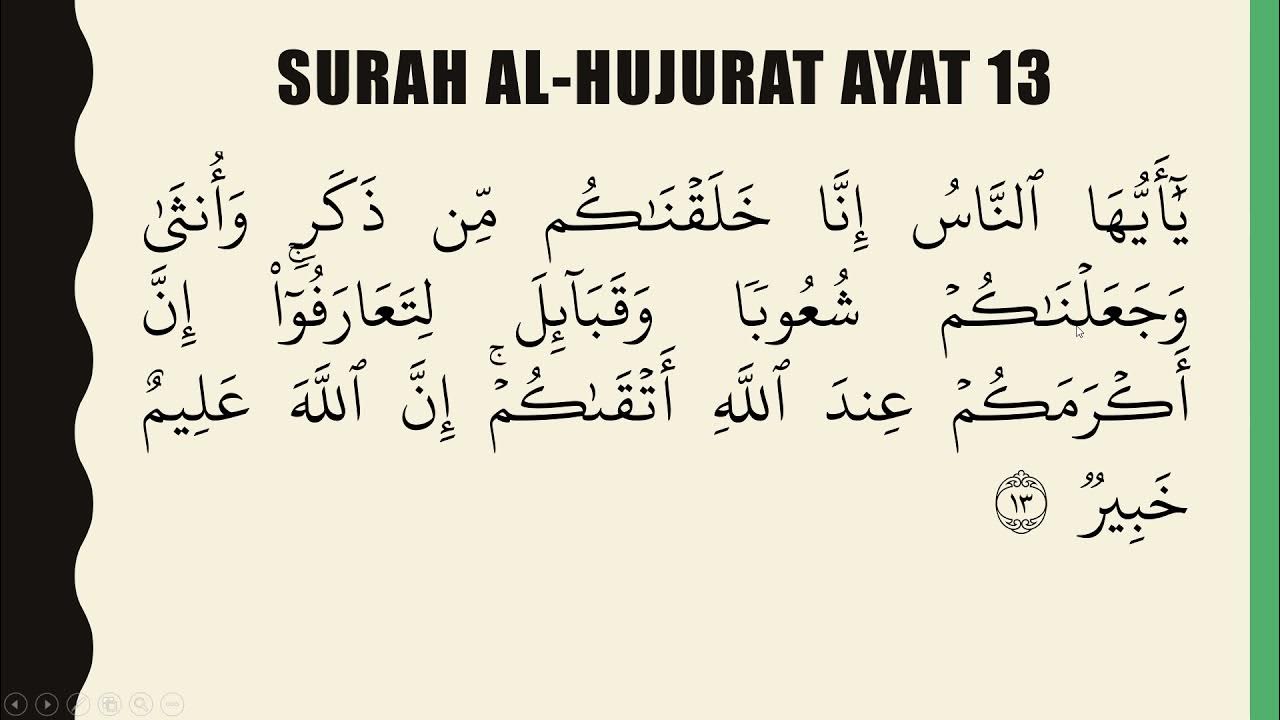 SURAH AL-HUJURAT AYAT 13
يَٰٓأَيُّهَا ٱلنَّاسُ إِنَّا خَلَقۡنَٰكُم مِّن ذَكَرٖ وَأُنثَىٰ
وَجَعَلۡنَٰكُمۡ شُعُوبٗا وَقَبَآئِلَ لِتَعَارَفُوٓاْۚ إِنَّ
أَكۡرَمَكُمۡ عِندَ ٱللَّهِ أَتۡقَىٰكُمۡۚ إِنَّ ٱللَّهَ عَلِيمٌ
خَبِيرٞ ١٣